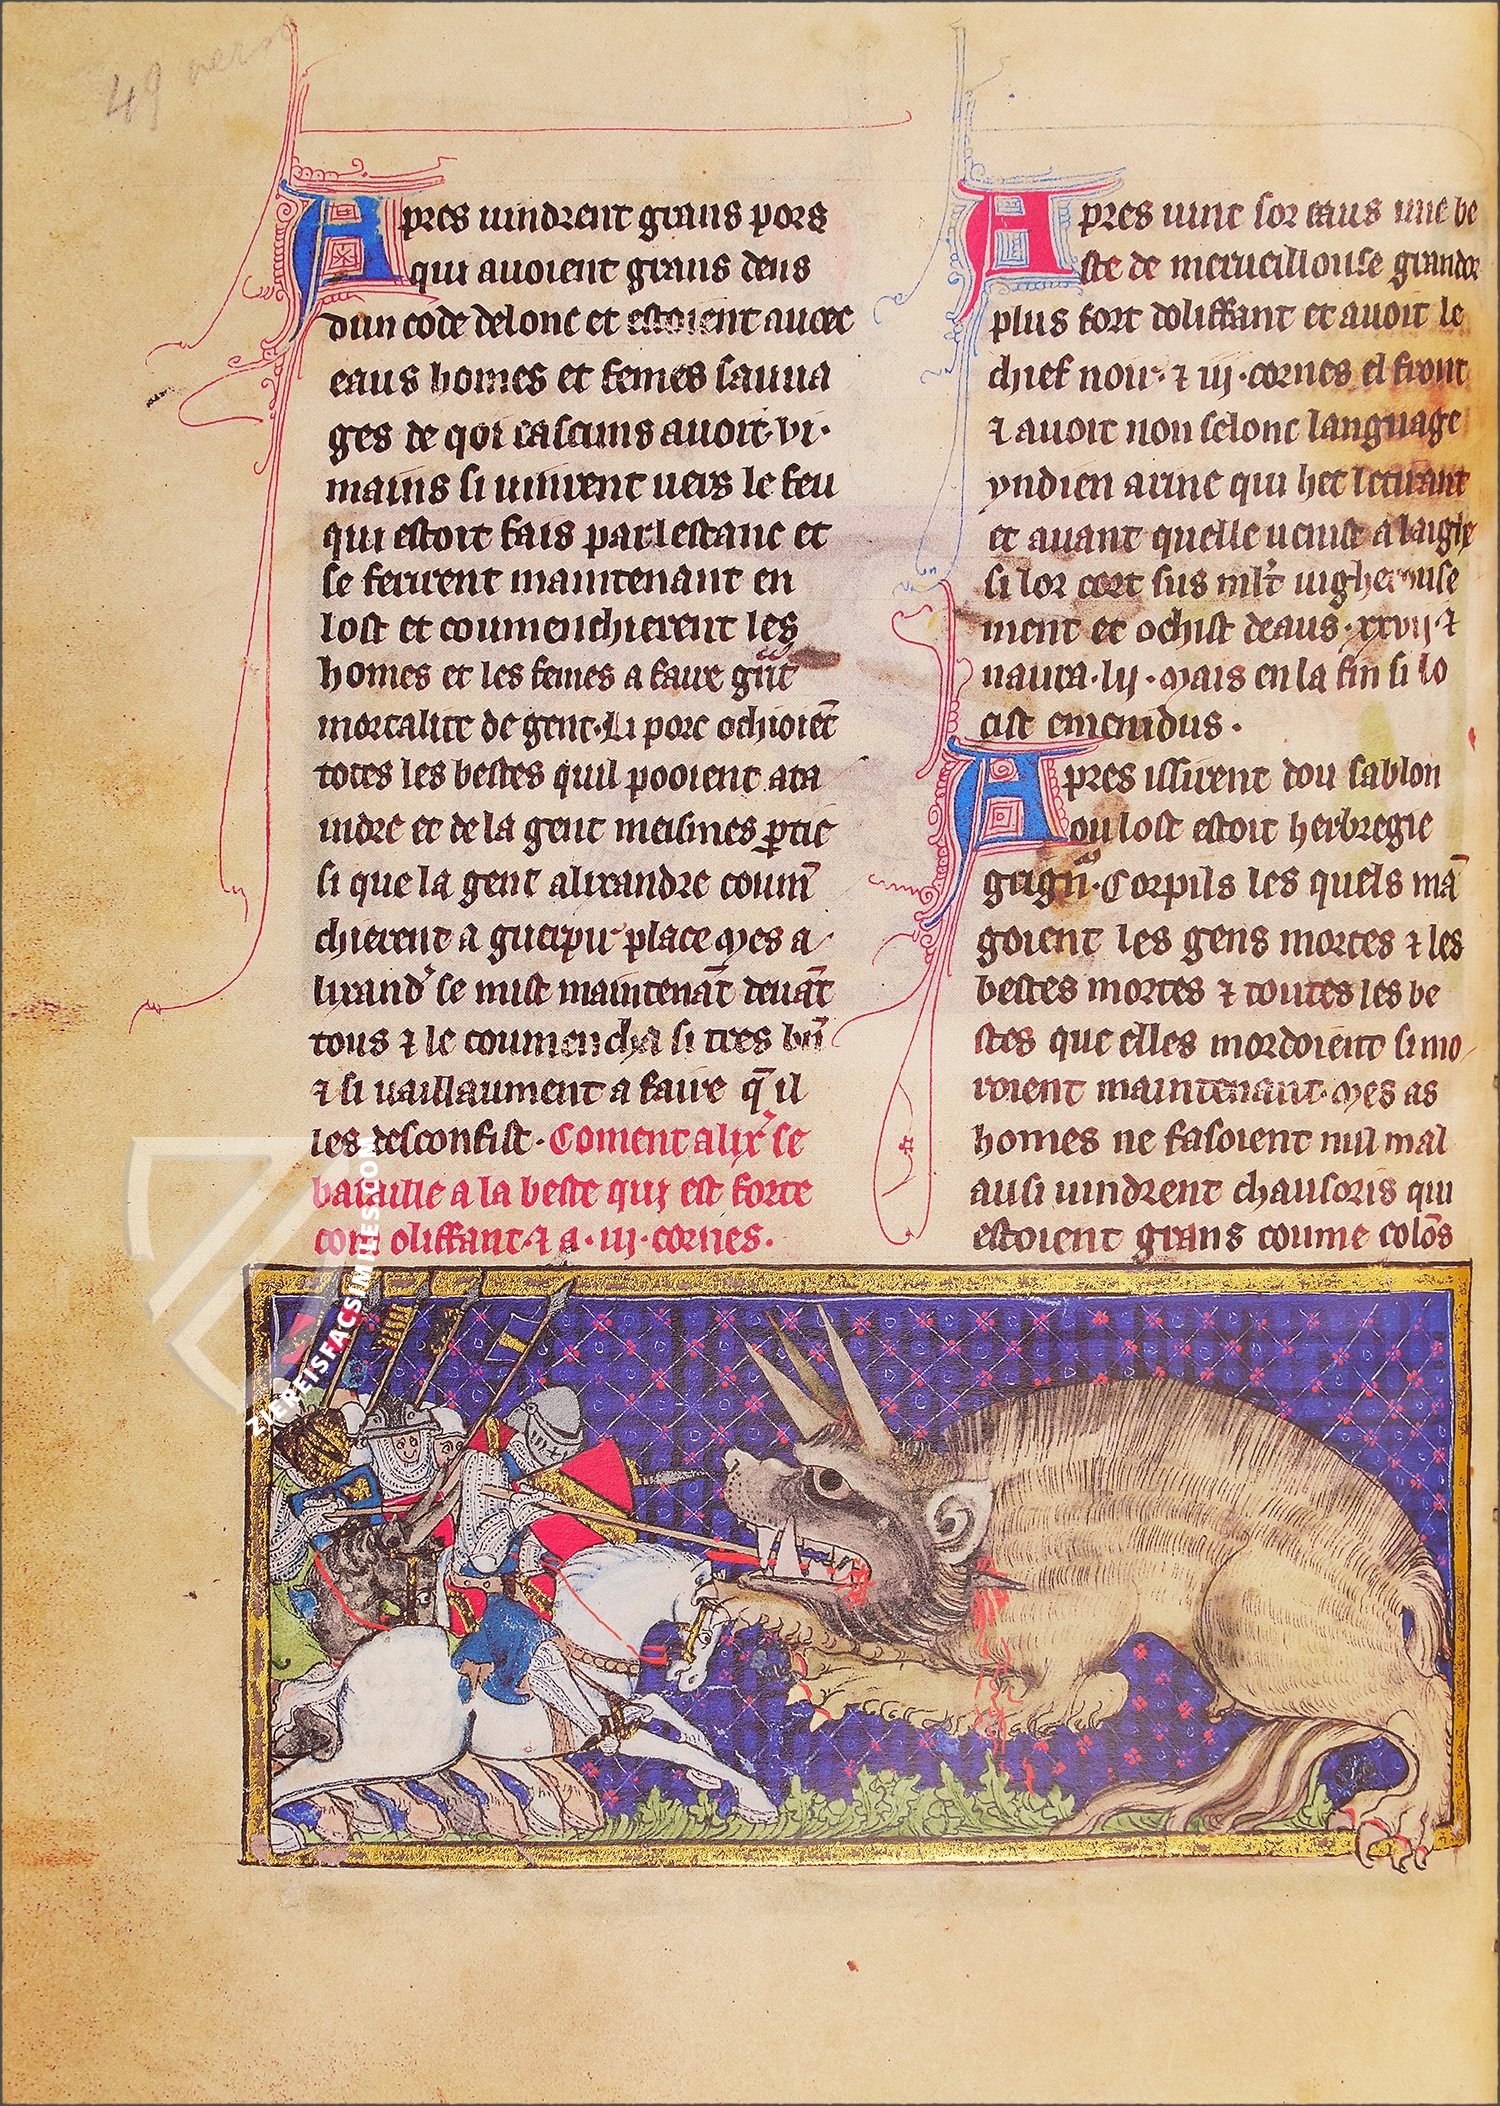 49 verso
Apres uindrent grans pors
qui auoient grans dens
dun code delonc et estoient auoec
eaus homes et femes sauua
ges de qoi cascuns auoit·vi·
mains si uinrent uers le feu
qui estoit fais par lestanc et
se ferirent maintenant en
lost et coumenchierent les
homes et les femes a faire gñt
mortalite de gent·Li porc ochioiẽt
totes les bestes quil pooient ata
indre et de la gent meismes ꝑtie
si que la gent alixandre coum̃
chierent a guerpir place Mes a
lixandʼ se mist maintenãt deuãt
tous ⁊ le coumencha si tres bñ
⁊ si uaillaument a faire q̃ il
les desconfist· Coment alixʼ se
bataille a la beste qui est forte
com oliffant·⁊ a·iij·cornes·
Apres uint sor eaus une be
ste de merueillouse grandor
plus fort doliffant et auoit le
chief noir·⁊ iij·cornes el front
⁊ auoit non selonc language
yndien arine qui het le tirant
et auant quelle uenist a laighe
si lor cort sus ml̃t uigherouse
ment et ochist deaus·xxvij·⁊
naura·lij·Mais en la fin si lo
cist emenidus·
Apres issirent dou sablon
ou lost estoit herbregie
grign̄·Corpils les quels mã
goient les gens mortes ⁊ les
bestes mortes ⁊ toutes les be
stes que elles mordoient si mo
roient maintenant·Mes as
homes ne fasoient nul mal
ausi uindrent chausoris qui
estoient grans coume colõs
ZIEREISFACSIMILES.COM